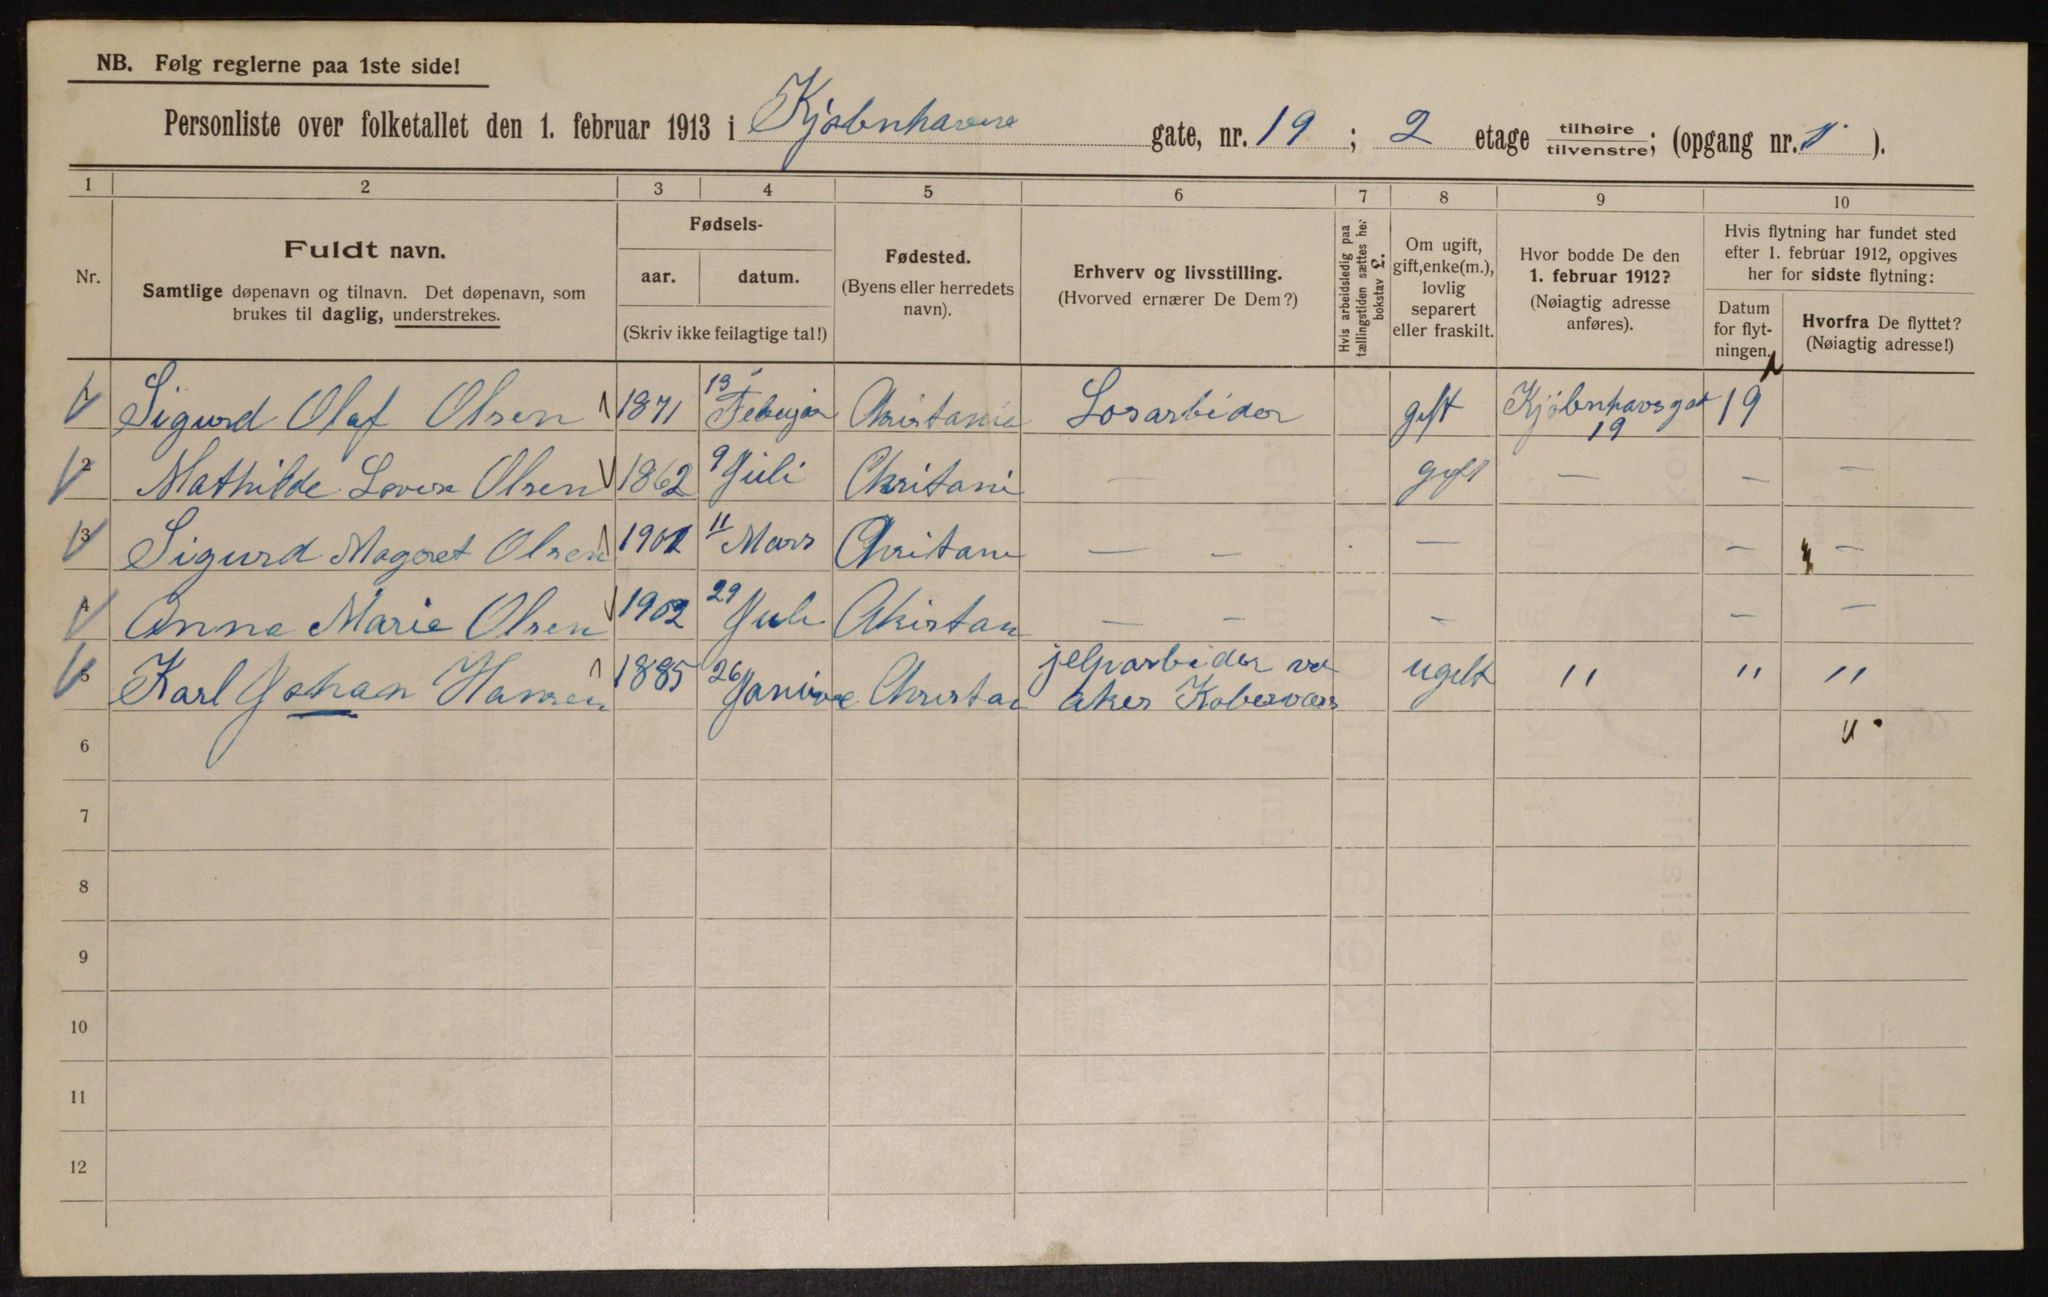 NB. Følg reglerne paa 1ste side!
Personliste over folketallet den 1. februar 1913 i Kjøbenhavns gate, nr. 19 ; 2 etage tilhøire/tilvenstre; (opgang nr. ).
1 2 3 4 5 6 7 8 9 10
Nr.
Fuldt navn.
Samtlige døpenavn og tilnavn. Det døpenavn, som
brukes til daglig, understrekes.
Fødsels-
aar. datum.
(Skriv ikke feilagtige tal!)
Fødested.
(Byens eller herredets
navn).
Erhverv og livsstilling.
(Hvorved ernærer De Dem?)
Hvis arbeidsledig paa
tællingstiden sættes her
bokstav £.
Om ugift,
gift, enke(m.),
lovlig
separert
eller fraskilt.
Hvor bodde De den
1. februar 1912?
(Nøiagtig adresse
anføres).
Hvis flytning har fundet sted
efter 1. februar 1912, opgives
her for sidste flytning:
Datum
for flyt-
ningen.
Hvorfra De flyttet?
(Nøiagtig adresse!)
1 Sigurd Olaf Olsen 1871 13 Februar Christania Losarbider gift Kjøbnhavsgat 19 19
2 Mathilde Lovise Olsen 1862 9 Juli Chritani — gift — — —
3 Sigurd Magoret Olsen 1901 11 Mars Chritani — — — — —
4 Anna Marie Olsen 1902 29 Juli Christan — — — — —
5 Karl Johan Hansen 1885 26 Januar Christan jelparbider ve aker Koberværs ugift " " "
6
7
8
9
10
11
12